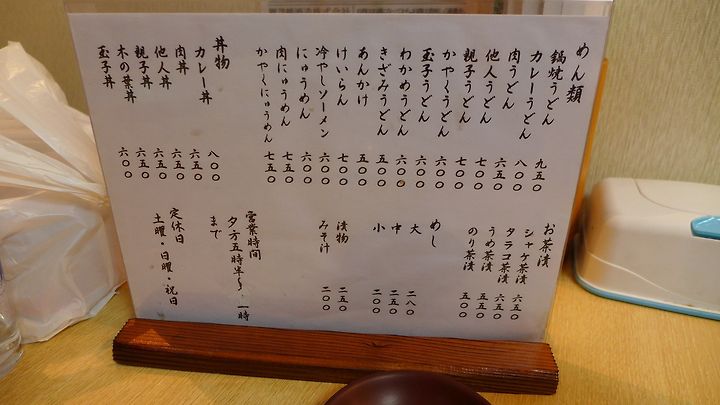 めん類
鍋焼うどん 九五〇
カレーうどん 八〇〇
肉うどん 六五〇
他人うどん 七〇〇
親子うどん 七〇〇
かやくうどん 六〇〇
玉子うどん 六〇〇
わかめうどん 六〇〇
きざみうどん 五〇〇
あんかけ 五〇〇
けいらん 七〇〇
冷やしソーメン 六〇〇
にゅうめん 六〇〇
肉にゅうめん 七五〇
かやくにゅうめん 七五〇
丼物
カレー丼 八〇〇
肉丼 六五〇
他人丼 六五〇
親子丼 六五〇
木の葉丼 六〇〇
玉子丼 六〇〇
お茶漬
シャケ茶漬 六五〇
タラコ茶漬 六五〇
うめ茶漬 五五〇
のり茶漬 五〇〇
めし
大 二八〇
中 二五〇
小 二〇〇
漬物 二五〇
みそ汁 二〇〇
営業時間
夕方五時半〜一時
まで
定休日
土曜・日曜・祝日